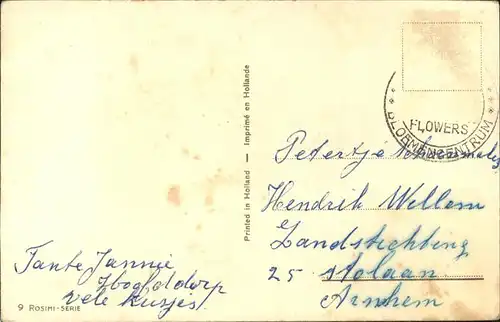 Tante Jannie
vele kusjes.
9 ROSIMI-SERIE
Printed in Holland — Imprimé en Hollande
FLOWERS
BLOEMENCENTRUM
Petertje
Hendrik Willem
25
Arnhem